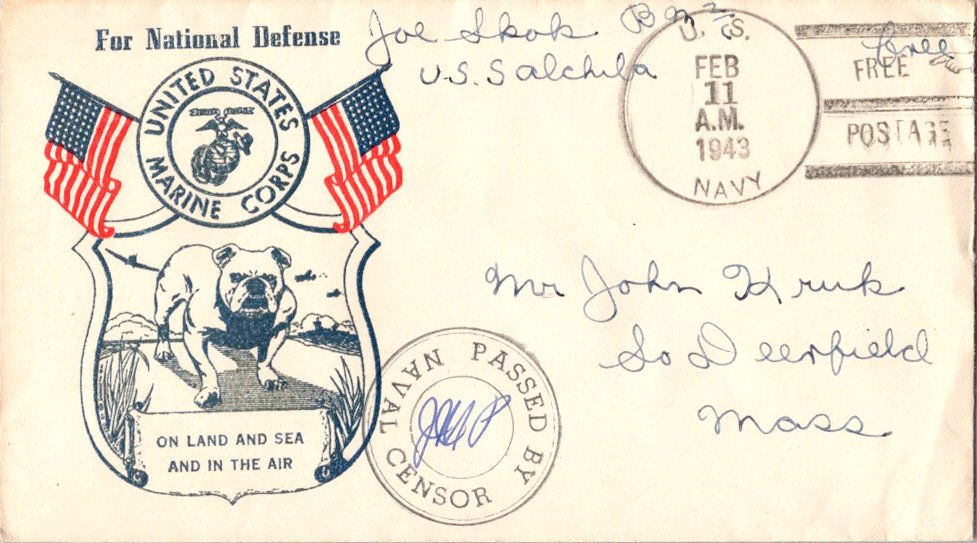 For National Defense
Joe Skok B M 2/c
U.S.S alchiba
UNITED STATES MARINE CORPS
U. S.
FEB
11
A.M.
1943
NAVY
Free
FREE
POSTAGE
Mr John Kruk
So Deerfield
Mass
PASSED BY
NAVAL CENSOR
ON LAND AND SEA
AND IN THE AIR